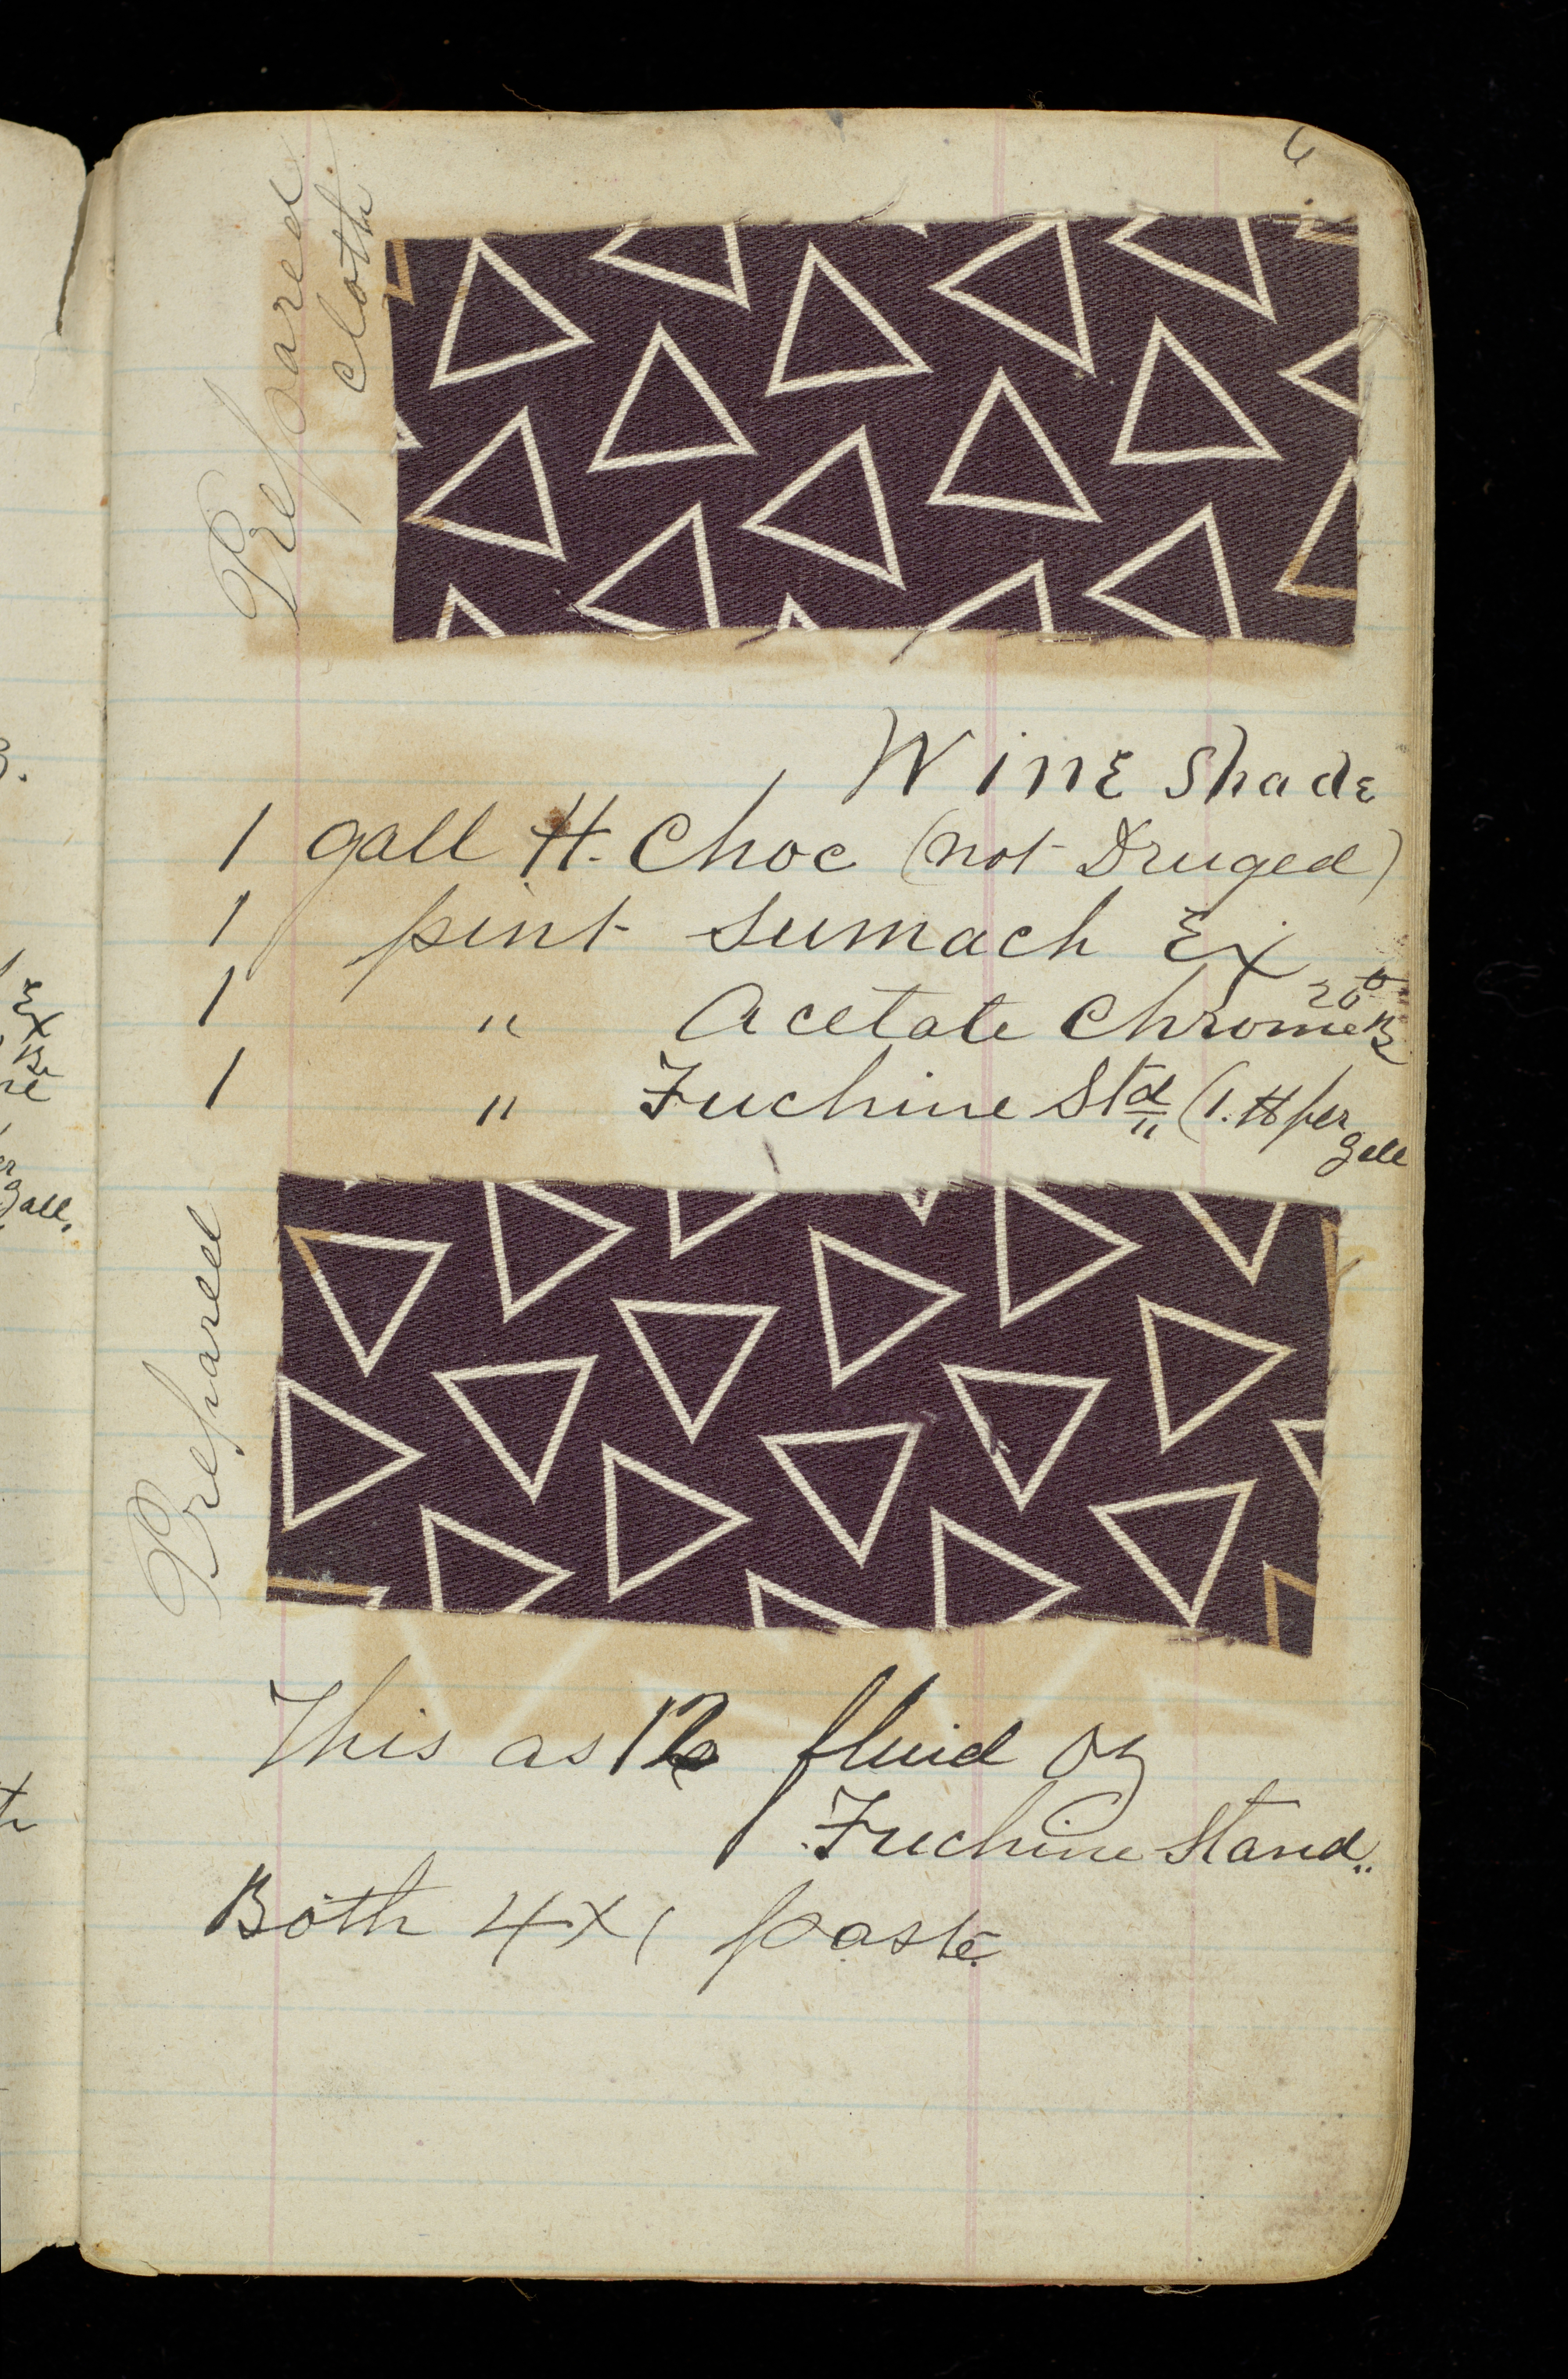 6
Prepared
cloth
Wine Shade
1 gall H. Choc (not Druged)
1 pint Sumach Ex
1 " Acetate Chrome 20° B
1 " Fuchine Std (1. # per
gall
Prepared
This as fluid oz
Fuchine Stand.
Both 4x1 paste
gall.